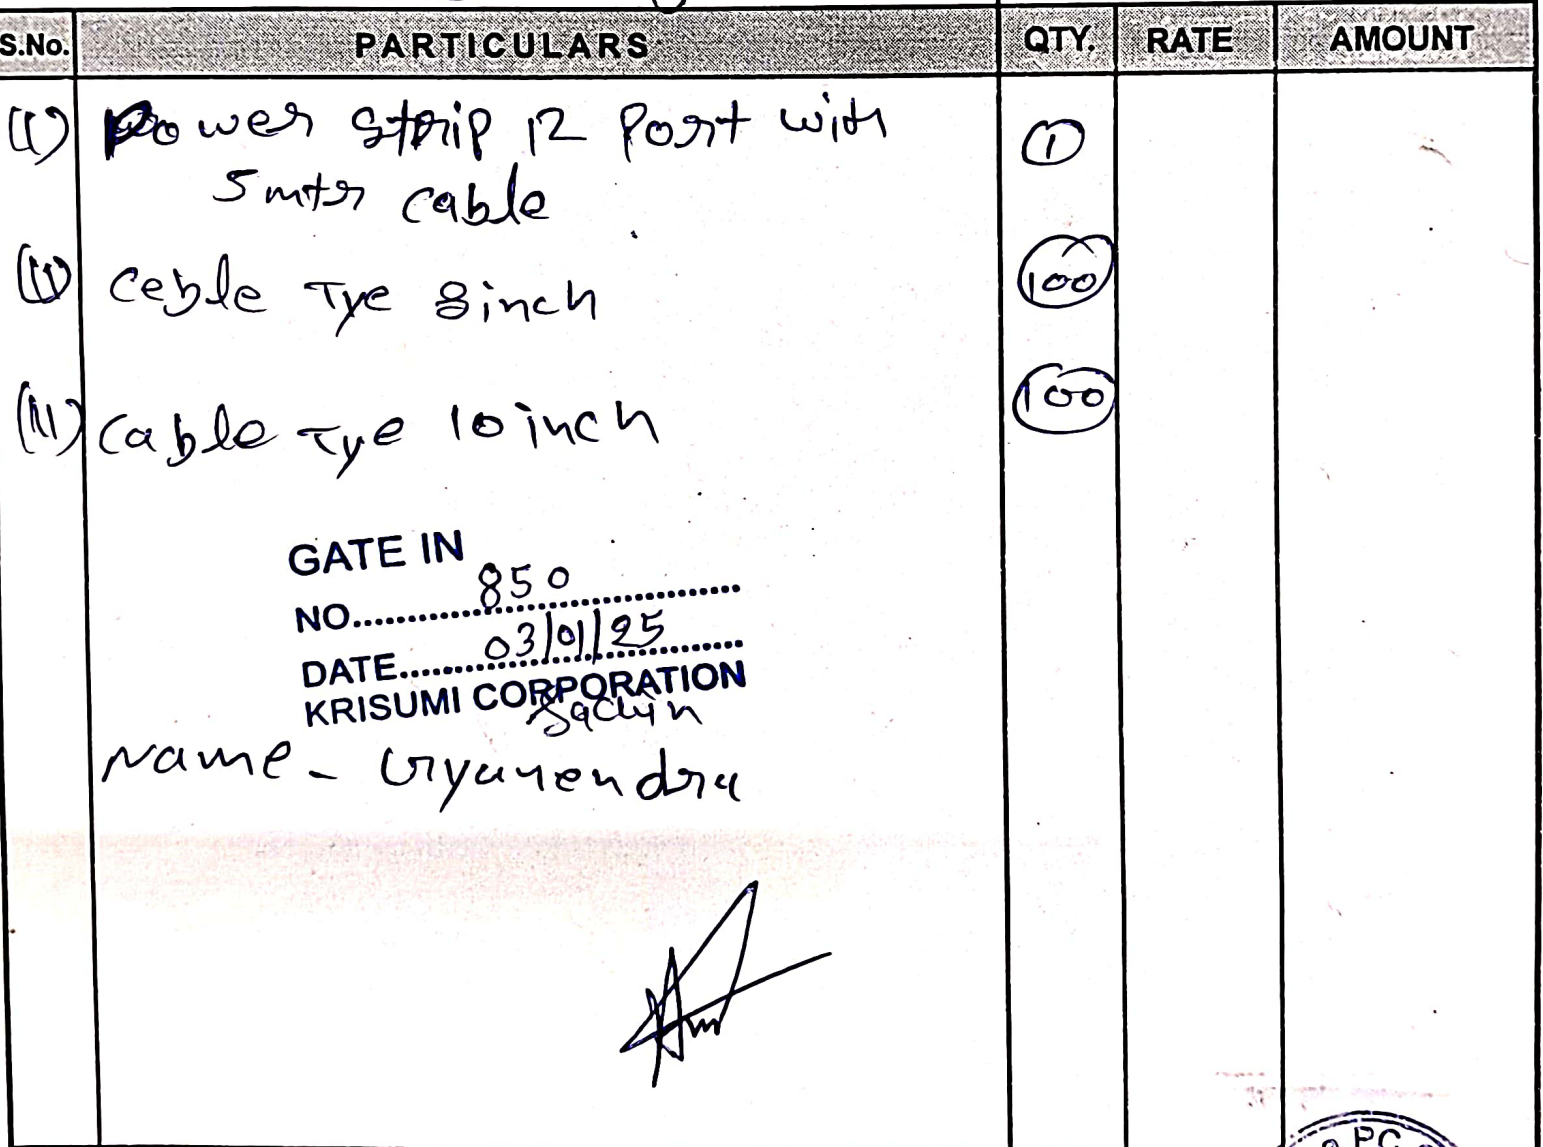 S.No. PARTICULARS QTY. RATE AMOUNT
(I) Power Strip 12 Port with 1
5 mtr cable
(II) Ceble Tye 8 inch 100
(III) Cable Tye 10 inch 100
GATE IN
NO. 850
DATE 03/01/25
KRISUMI CORPORATION
Sachin
Name - Gyanendra
PC